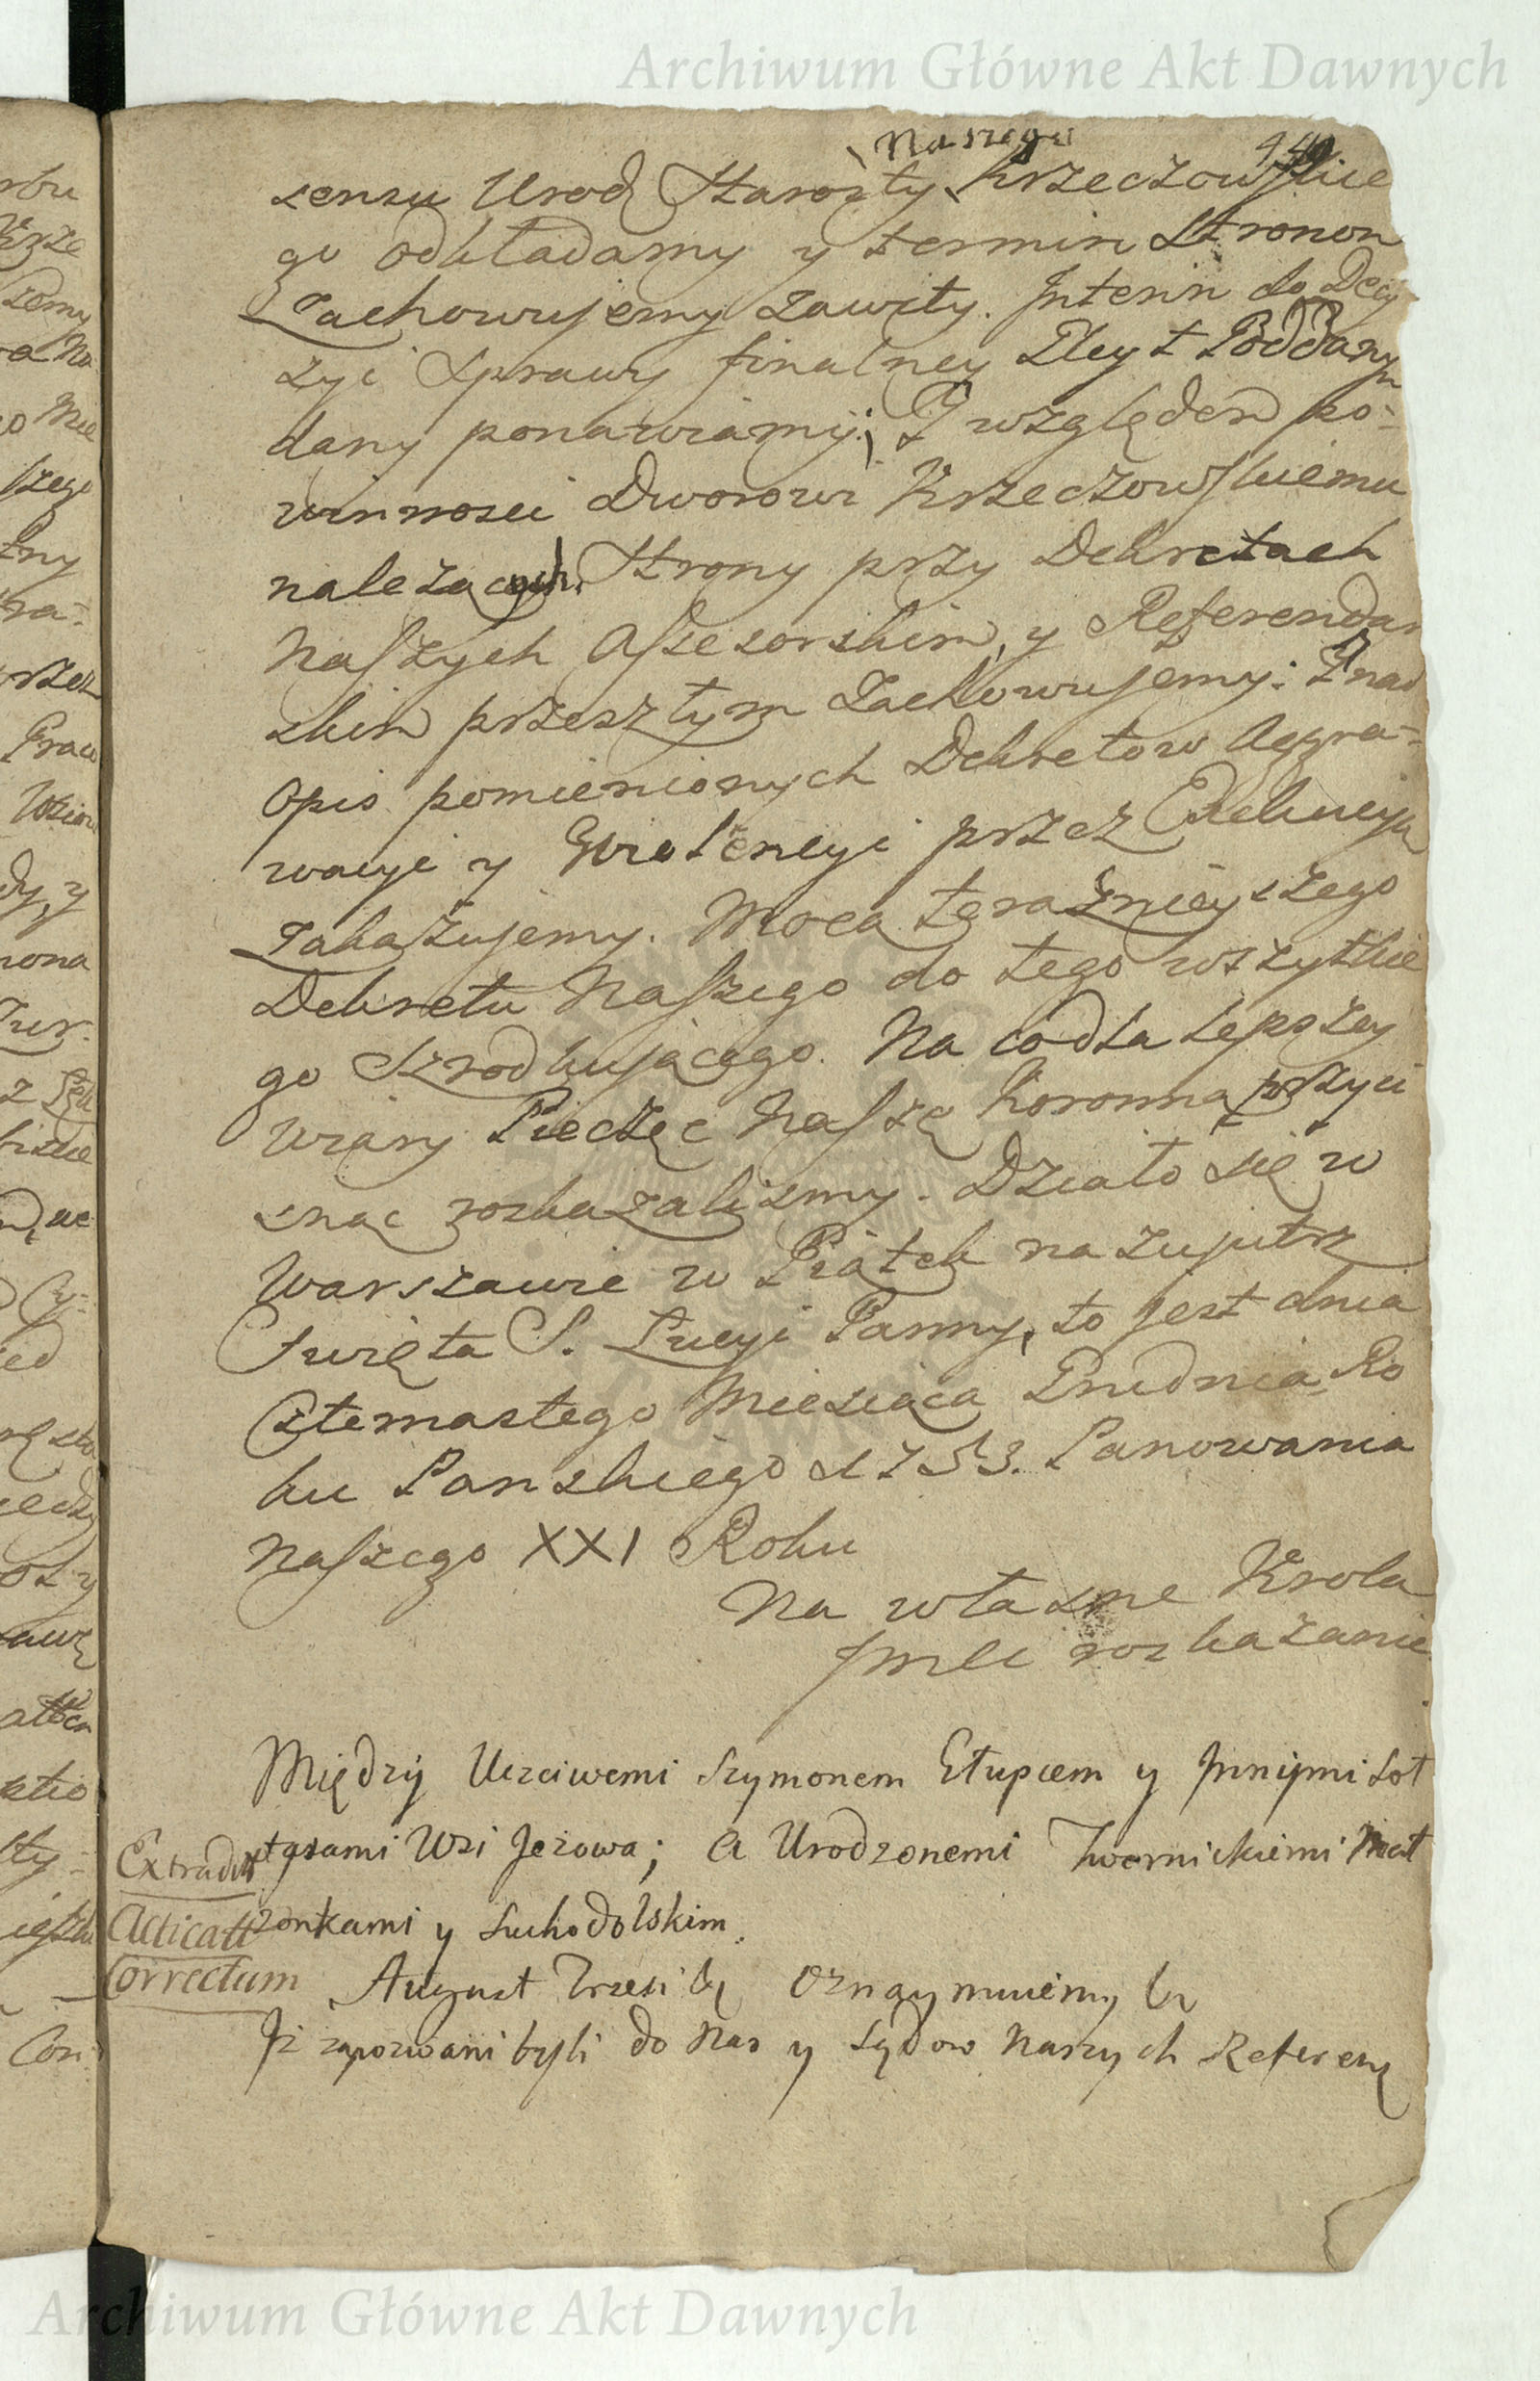 Archiwum Główne Akt Dawnych
Naszego
sensu Urod Starosty Krzeczowskie
go odkładamy y termin Stronon
Zachowujemy zawity. Interin do Decy
zyi Sprawy finalney Gleyt Poddanym
dany ponawiamy; I względem po-
winnosci Dworowi Krzeczowskiemu
należących Strony przy Dekretach
Naszych Assesorskim, y Referendar
skim przeszłym Zachowujemy: I nad
Opis pomienionych Dekretow Aggra-
wacyi y Wiolencyi przez Exekucyą
Zakazujemy. Mocą teraznieyszego
Dekretu Naszego do tego wszytkie
go Szrodkującego. Na co dla lepszey
Wiary Pieczęc Naszę Koronną przyci
snąc rozkazalismy. Działo się w
Warszawie w Piątek nazujutrz
Swięta S. Lucyi Panny, to jest dnia
Czternastego Miesiąca Grudnia Ro
ku Panskiego 1753. Panowania
Naszego XXI Roku
Na własne Krola
Jmci rozkazanie
Między Uczciwemi Szymonem Głupcem y Innymi Soł
tysami Wsi Jeżowa; A Urodzonemi Zwernickiemi Mał
żonkami y Suchodolskim.
Extradit
Acticatt
Correctum
August Trzeci Oznaymuiemy
Iż zapozwani byli do Nas y Sądow Naszych Referen
Archiwum Główne Akt Dawnych